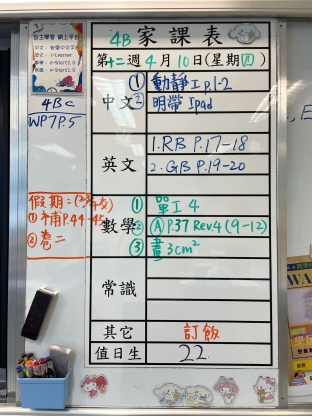 自主學習 網上平台
4B 家課表
第十二週 4月10日(星期四)
4BC
WP7 P.5
中文
① 動靜工 p.1-2
② 明帶 Ipad
英文
1. RB P.17-18
2. GB P.19-20
假期:
① 補 P.44-45
② 卷二
數學
① 單工 4
② Ⓐ P.37 Rev 4 (9-12)
③ 畫 3cm²
常識
其它
訂飯
值日生
22
WA